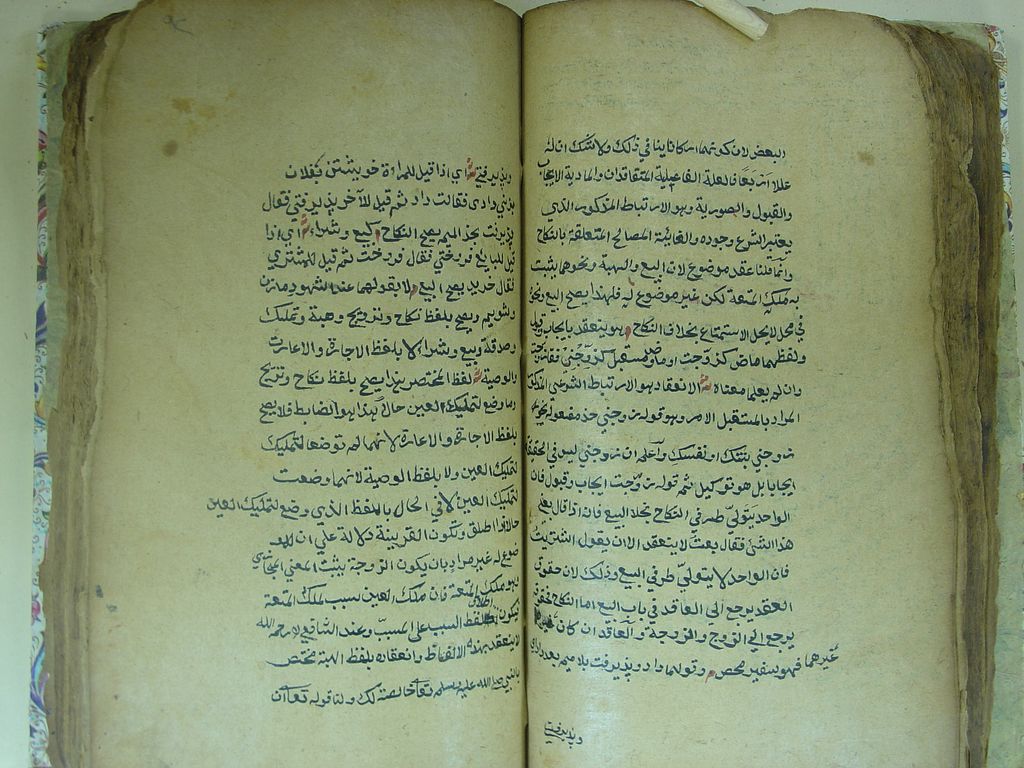 البعض لان كونهما اركانا ينافي ذلك ولا شك ان له
عللا اربعا فالعلة الفاعلية المتعاقدان والمادية الايجاب
والقبول والصورية وهو الارتباط المذكور الذي
يعتبر الشرع وجوده والغائية المصالح المتعلقة بالنكاح
وانما قلنا عقد موضوع لان البيع والهبة ونحوهما يثبت
به ملك المتعة لكن غير موضوع له فلهذا يصح البيع ونحوه
في محل لا يحل الاستمتاع بخلاف النكاح م هو ينعقد بايجاب وقبول
ولفظهما ماض كزوجت او ماض ومستقبل كزوجني فقال زوجت
وان لم يعلما معناه ش الانعقاد هو الارتباط الشرعي المذكور
المراد بالمستقبل الامر وهو قوله زوجني حذف مفعوله نحو
زوجني بنتك او نفسك واعلم ان زوجني ليس في الحقيقة
ايجابا بل هو توكيل ثم قوله زوجت ايجاب وقبول فان
الواحد يتولى طرفي النكاح بخلاف البيع فان اذا قال بعني
هذا الشئ فقال بعت لا ينعقد الا ان يقول اشتريت
فان الواحد لا يتولى طرفي البيع وذلك لان حقوق
العقد يرجع الى العاقد في باب البيع اما النكاح فحقوقه
يرجع الى الزوج والزوجة والعاقد ان كان غيرهما
غيرهما فهو سفير محض م وقولهما داد وپذيرفت بلا ميم بعد دادي
وپذيرفتي
وپذيرفتي ش اي اذا قيل للمراة خويشتن بفلان
بزني دادى فقالت داد ثم قيل للآخر پذيرفتي فقال
پذيرفت بحذف الميم يصح النكاح م كبيع وشراء ش اي اذا
قيل للبايع فروختي فقال فروخت ثم قيل للمشتري
فقال خريد يصح البيع م لا بقولهما عند الشهود مازن
وشويم ويصح بلفظ نكاح وتزويج وهبة وتمليك
وصدقة وبيع وشراء لا بلفظ الاجارة والاعارة
والوصية ش لفظ المختصر هذا يصح بلفظ نكاح وتزويج
وما وضع لتمليك العين حالا هذا هو الضابط فلا يصح
بلفظ الاجارة والاعارة لانهما لم توضعا لتمليك
لتمليك العين ولا بلفظ الوصية لانها وضعت
لتمليك العين لا في الحال بالفظ الذي وضع لتمليك العين
حالا اذا اطلق وتكون القرينة دلالة على ان المو
ضوع له غير مراد بان يكون الزوجة يثبت المعنى المجازي
وهو ملك المتعة فان ملك العين سبب لملك المتعة
فيكون اطلاق لفظ السبب على المسبب وعند الشافعي رحمه الله
لا ينعقد بهذه الالفاظ وانعقاده بلفظ الهبة مختص
بالنبي صلى الله عليه وسلم تعالى خالصة لك ولنا قوله تعالى ان